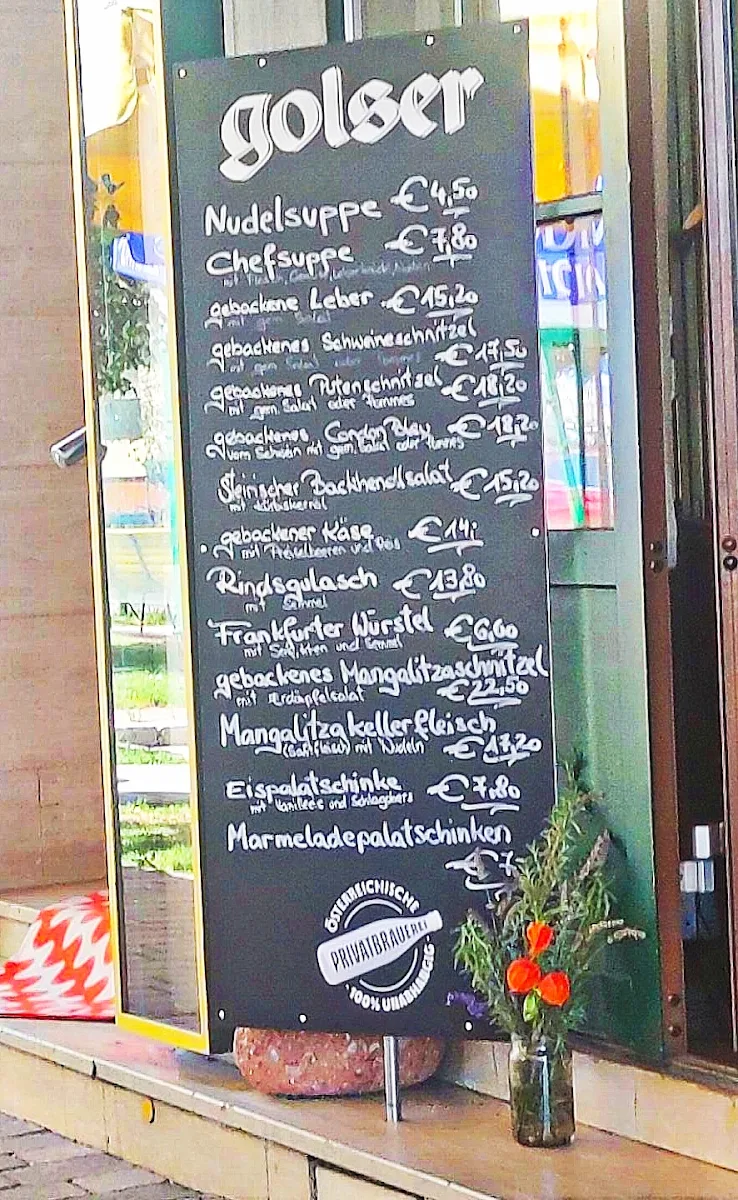 golser
Nudelsuppe €4,50
Chefsuppe €7,80
gebackene Leber €15,20
mit gem. Salat
gebackenes Schweineschnitzel
mit gem. Salat oder Pommes €17,50
gebackenes Putenschnitzel €18,20
mit gem. Salat oder Pommes
gebackenes Cordon Bleu €18,20
vom Schwein mit gem. Salat oder Pommes
Steirischer Backhendlsalat €15,20
mit Kürbiskernöl
gebackener Käse €14,-
mit Preiselbeeren und Reis
Rindsgulasch €13,80
mit Semmel
Frankfurter Würstel €6,60
mit Senf, Kren und Semmel
gebackenes Mangalitzaschnitzel
mit Erdäpfelsalat €22,50
Mangalitzakellerfleisch
(Saftfleisch) mit Nudeln €17,20
Eispalatschinke €7,80
mit Vanilleeis und Schlagobers
Marmeladepalatschinken
€7
ÖSTERREICHISCHE
PRIVATBRAUEREI
100% UNABHÄNGIG